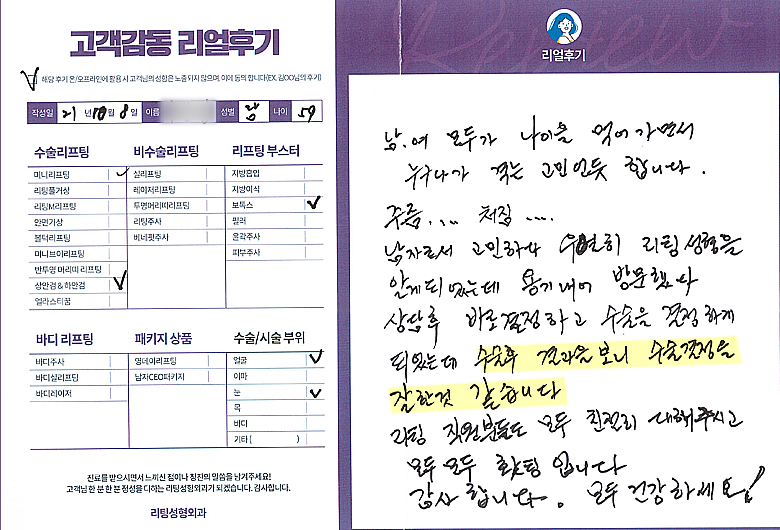 고객감동 리얼후기
해당 후기 온/오프라인에 활용 시 고객님의 성함은 노출되지 않으며, 이에 동의 합니다(EX. 김OO님의 후기)
작성일 21 년 10 월 8 일 이름 성별 남 나이 59
수술리프팅
미니리프팅
리팅풀거상
리팅M리프팅
안면거상
볼턱리프팅
미니브이리프팅
반투명 머리띠 리프팅
상안검 & 하안검
엘라스티꿈
비수술리프팅
실리프팅
레이저리프팅
투명머리띠리프팅
리팅주사
베네핏주사
리프팅 부스터
지방흡입
지방이식
보톡스
필러
윤곽주사
피부주사
바디 리프팅
바디주사
바디실리프팅
바디레이저
패키지 상품
영데이리프팅
남자CEO패키지
수술/시술 부위
얼굴
이마
눈
목
바디
기타 ( )
진료를 받으시면서 느끼신 점이나 칭찬의 말씀을 남겨주세요!
고객님 한 분 한 분 정성을 다하는 리팅성형외과가 되겠습니다. 감사합니다.
리팅성형외과
Review
리얼후기
남.여 모두가 나이을 먹어가면서
누구나가 격는 고민인듯 합니다.
주름.... 처짐....
남자로서 고민하다 우연히 리팅성형을
알게되었는데 용기내어 방문했다
상담후 바로결정하고 수술을 결정하게
되었는데 수술후 결과을보니 수술결정을
잘한것 같습니다
리팅 직원분들도 모두 친절히 대해주시고
모두모두 화팅 입니다
감사합니다. 모두 건강하세요!